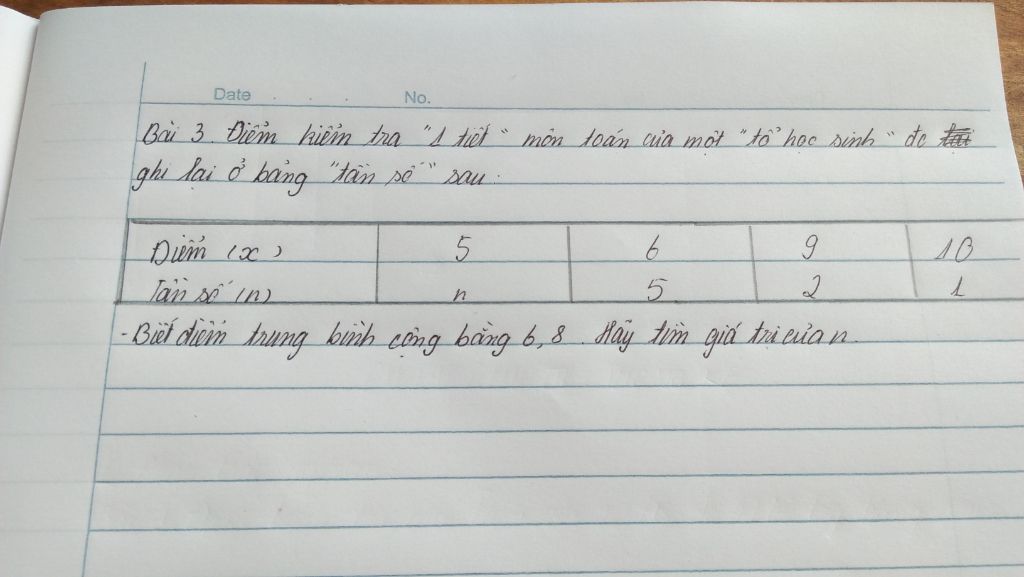 Date . . . No.
Bài 3. Điểm kiểm tra "1 tiết" môn toán của một "tổ học sinh" đc
ghi lại ở bảng "tần số" sau:
Điểm (x) 5 6 9 10
Tần số (n) n 5 2 1
- Biết điểm trung bình cộng bằng 6,8. Hãy tìm giá trị của n.